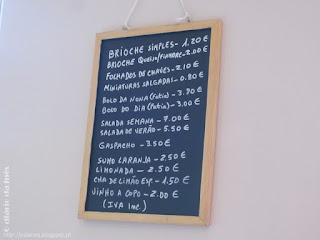 BRIOCHE SIMPLES- 1.20 €
BRIOCHE QUEIJO/FIAMBRE- 2.00 €
FOLHADOS DE CHAVES- 2.10 €
MINIATURAS SALGADAS- 0.80 €
BOLO DA NONA (Fatia)- 3.90 €
BOLO DO DIA (Fatia)- 3.00 €
SALADA SEMANA - 7.00 €
SALADA DE VERÃO- 5.50 €
GASPACHO - 3.50 €
SUMO LARANJA - 2.50 €
LIMONADA - 2.50 €
CHÁ DE LIMÃO ESP.- 1.50 €
VINHO A COPO - 2.00 €
(IVA Inc.)
© diário da inês